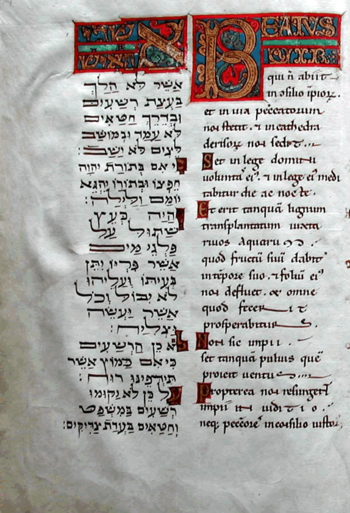 אשרי
האיש
אשר לא הלך
בעצת רשעים
ובדרך חטאים
לא עמד ובמושב
לצים לא ישב:
כי אם בתורת יהוה
חפצו ובתורתו יהגה
יומם ולילה:
והיה כעץ
שתול על
פלגי מים
אשר פריו יתן
בעיתו ועליהו
לא יבול וכל
אשר יעשה
יצליח:
לא כן הרשעים
כי אם כמוץ אשר
תידפינו רוח:
על כן לא יקומו
רשעים במשפט
וחטאים בעדת צדיקים:
BEATUS
VIR
qui n̄ abiit
in ɔsilio īpioꝝ.
et in uia peccatorum
nō stetit. ⁊ in cathedra
derisoꝝ nō sedit.
Set in lege domini
uoluntaſ ei⁹. ⁊ in lege ei⁹ medi
tabitur die ac nocte.
Et erit tanquā lignum
transplantatum iuxta
riuos aquarum
quod fructū suū dabit
in tēpore suo. ⁊ foliū ei⁹
nō defluet. et omne
quod fecerit
prosperabitur.
Non sic impii.
set tanquā puluis quē
proicit uentus.
Propterea nō resurgent
impii in iuditio.
neq; pecc̄oreſ in cōsilio iustoꝝ.